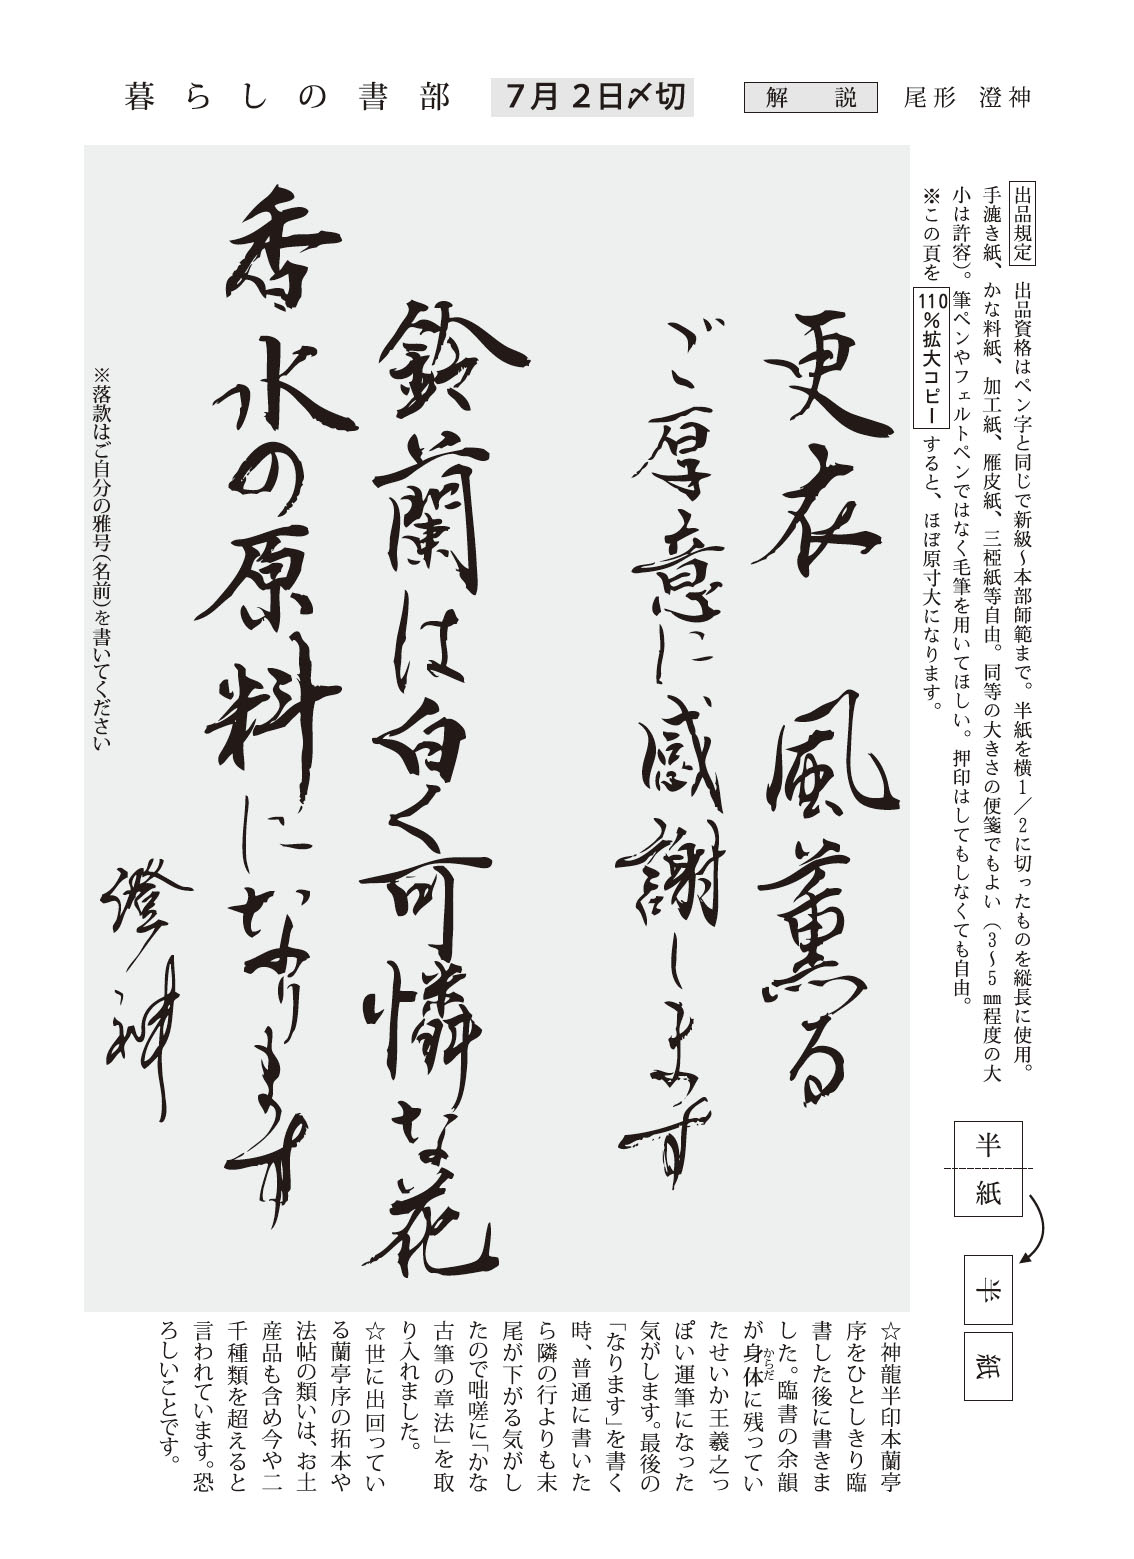 暮らしの書部 7月2日〆切 解説 尾形 澄神
出品規定 出品資格はペン字と同じで新級～本部師範まで。半紙を横1／2に切ったものを縦長に使用。
手漉き紙、かな料紙、加工紙、雁皮紙、三椏紙等自由。同等の大きさの便箋でもよい（3～5㎜程度の大
小は許容）。筆ペンやフェルトペンではなく毛筆を用いてほしい。押印はしてもしなくても自由。
※この頁を110％拡大コピーすると、ほぼ原寸大になります。
半紙
半紙
更衣 風薫る
ご厚意に感謝します
鈴蘭は白く可憐な花
香水の原料になります
澄神
※落款はご自分の雅号（名前）を書いてください
☆神龍半印本蘭亭
序をひとしきり臨
書した後に書きま
した。臨書の余韻
が身体に残ってい
からだ
たせいか王羲之っ
ぽい運筆になった
気がします。最後の
「なります」を書く
時、普通に書いた
ら隣の行よりも末
尾が下がる気がし
たので咄嗟に「かな
古筆の章法」を取
り入れました。
☆世に出回ってい
る蘭亭序の拓本や
法帖の類いは、お土
産品も含め今や二
千種類を超えると
言われています。恐
ろしいことです。